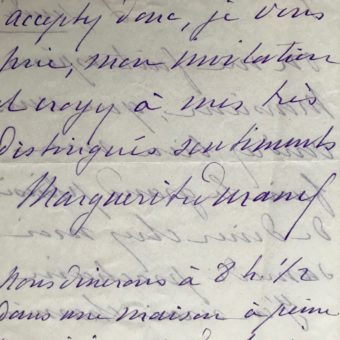 acceptez donc, je vous
prie, mon invitation
et croyez à mes très
distingués sentiments
Marguerite Durand
nous dinerons à 8 h 1/2
dans une maison à peine